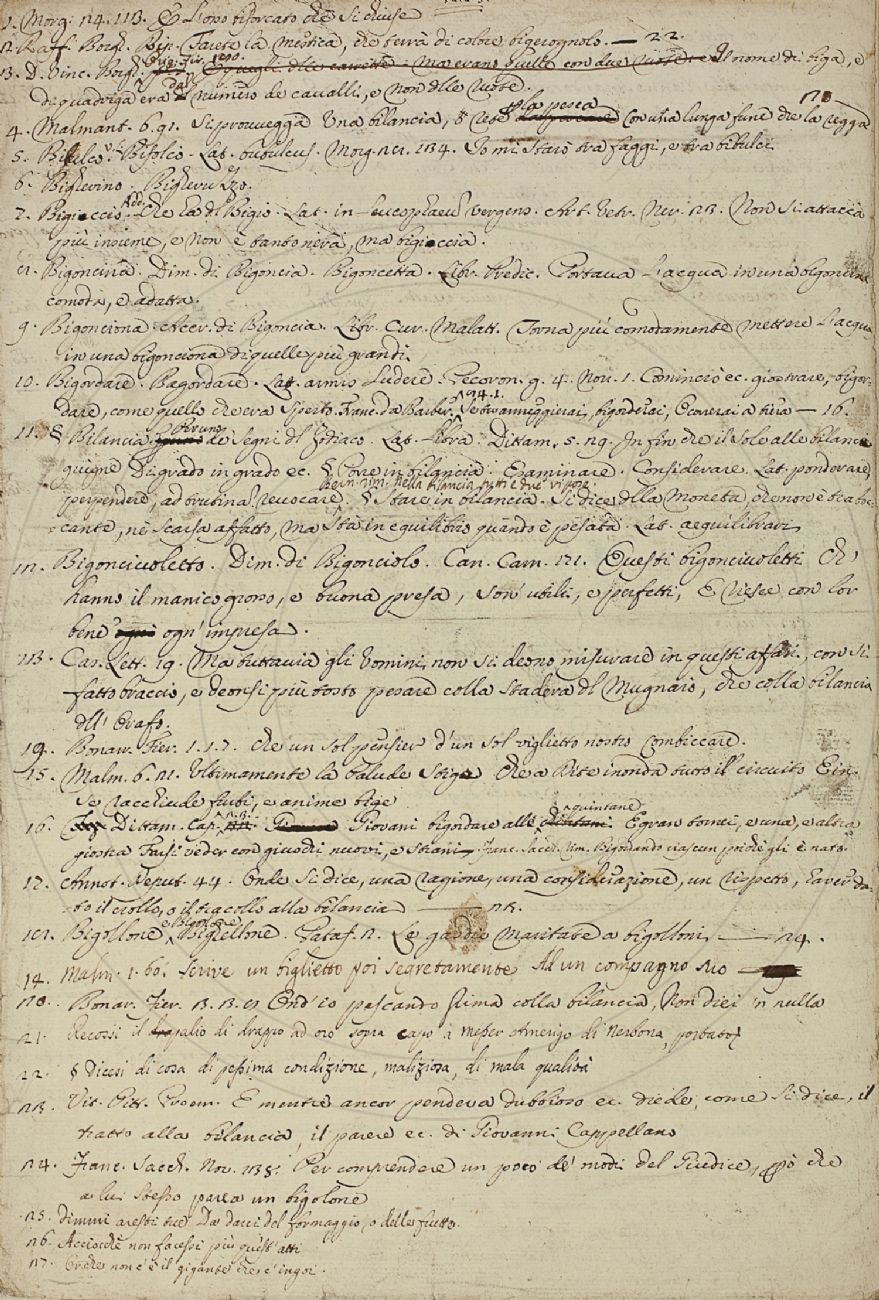 1. Morg. 24. 113. E l'oso biforcato che si chiuse
2. Raff. Borgh. Rip. Farete la mestica, che terrà di colore bigerognolo. — 22.
3. D. Vinc. Borgh. Il nome di biga, e
di quadriga era dal numero de cavalli, e non delle ruote.
4. Malmant. 6. 91. Si provvegga una bilancia, la pesca con una lunga fune che la regga
5. Bifulco v. Bifolco. Lat. bubulcus. Morg. 21. 134. Io mi starò tra faggi, e tra bifulci.
6. Bigherino. Bigheruzzo.
7. Bigiccio. Add. Che ha del Bigio. Lat. in leucophaeum vergens. Art. Vetr. Ner. 23. Non si attacca
più insieme, e non è tanto nera, ma bigiccia.
8. Bigoncina. Dim. di Bigoncia. Bigoncetta. Libr. Predic. Portava l'acqua in una bigoncina
comoda, e adatta.
9. Bigonciona. Accr. di Bigoncia. Libr. Cur. Malatt. Torna più comodamente mettere l'acqua
in una bigonciona di quelle più grandi.
10. Bigordare. Bagordare. Lat. armis ludere. Pecoron. g. 4. Nov. 1. Cominciò ec. giostrare, e bigor-
dare, come quello che era sperto. Franc. da Barber. 241. Se tranneggierai, bigorderai, O correrai a tira — 16.
11. § Bilancia. Uno de' segni del Zodiaco. Lat. Libra. Dittam. 5. 29. In fin che il Sole alle bilance
giugne Di grado in grado ec. § Porre in bilancia. Esaminare. Considerare. Lat. ponderare,
perpendere, ad trutina revocare. § Stare in bilancia. Si dice della Moneta, che non è traboc-
cante, nè scarsa affatto, ma sta in equilibrio quando è pesata. Lat. aequilibrari
12. Bigonciuoletto. Dim. di Bigonciolo. Can. Carn. 121. Questi bigonciuoletti Ch'
hanno il manico grosso, e buona presa, Son' utili, e perfetti, E riesce con lor
bene ogn' impresa.
13. Car. Lett. 19. Ma tuttavia gli uomini non si deono misurare in questi affari, con sì
fatto braccio, e deonsi più tosto pesare colla stadera del Mugnaio, che colla bilancia
dell' Orafo.
14. Bonar. Fier. 1. 1. 7. Che un sol pensier d'un sol viglietto nostro combiccare.
15. Malm. 6. 21. Ultimamente la palude Stige Che a Dite inonda tutto il circuito E in
se racchiude furbi, e anime bige
16. Dittam. Cap. Giovani bigordare alle quintane E gran tornei, e una, e altra
giostra Farsi veder con giuochi nuovi, e strani. Franc. Sacch. Rim. Bigordando ciascun poichè gli è nato.
17. Annot. Deput. 44. Onde si dice, una ragione, una considerazione, un rispetto, haver da-
to il crollo, o il tracollo alla bilancia — 23.
18. Bigollone, e Bigolone, Bighellone. Pataf. 2. Le gardie maritate a bigolloni — 24.
19. Malm. 1. 60. Scrive un biglietto poi segretamente Ad un compagno suo
20. Bonar. Fier. 3. 3. 8 Ond' io pescando stima colla bilancia, Non diei 'n nulla
21. Recossi il palio di drappo ad oro sopra capo a messer Amerigo di Nerbona, portato
22. § Dicesi di cosa di pessima condizione, maliziosa, di mala qualità
23. Vit. Pitt. Proem. E mentre ancor pendeva dubbioso ec. diede, come si dice, il
tratto alla bilancia, il parere ec. di Giovanni Cappellano
24. Franc. Sacch. Nov. 138. Per comprendere un poco de' modi del Giudice, però che
a lui stesso parea un bigolone
25. Dimmi aresti tu Da darci del formaggio, o delle frutte.
26. Acciocchè non facessi più quest' atti
27. non c' è il gigante che c' ingoi.